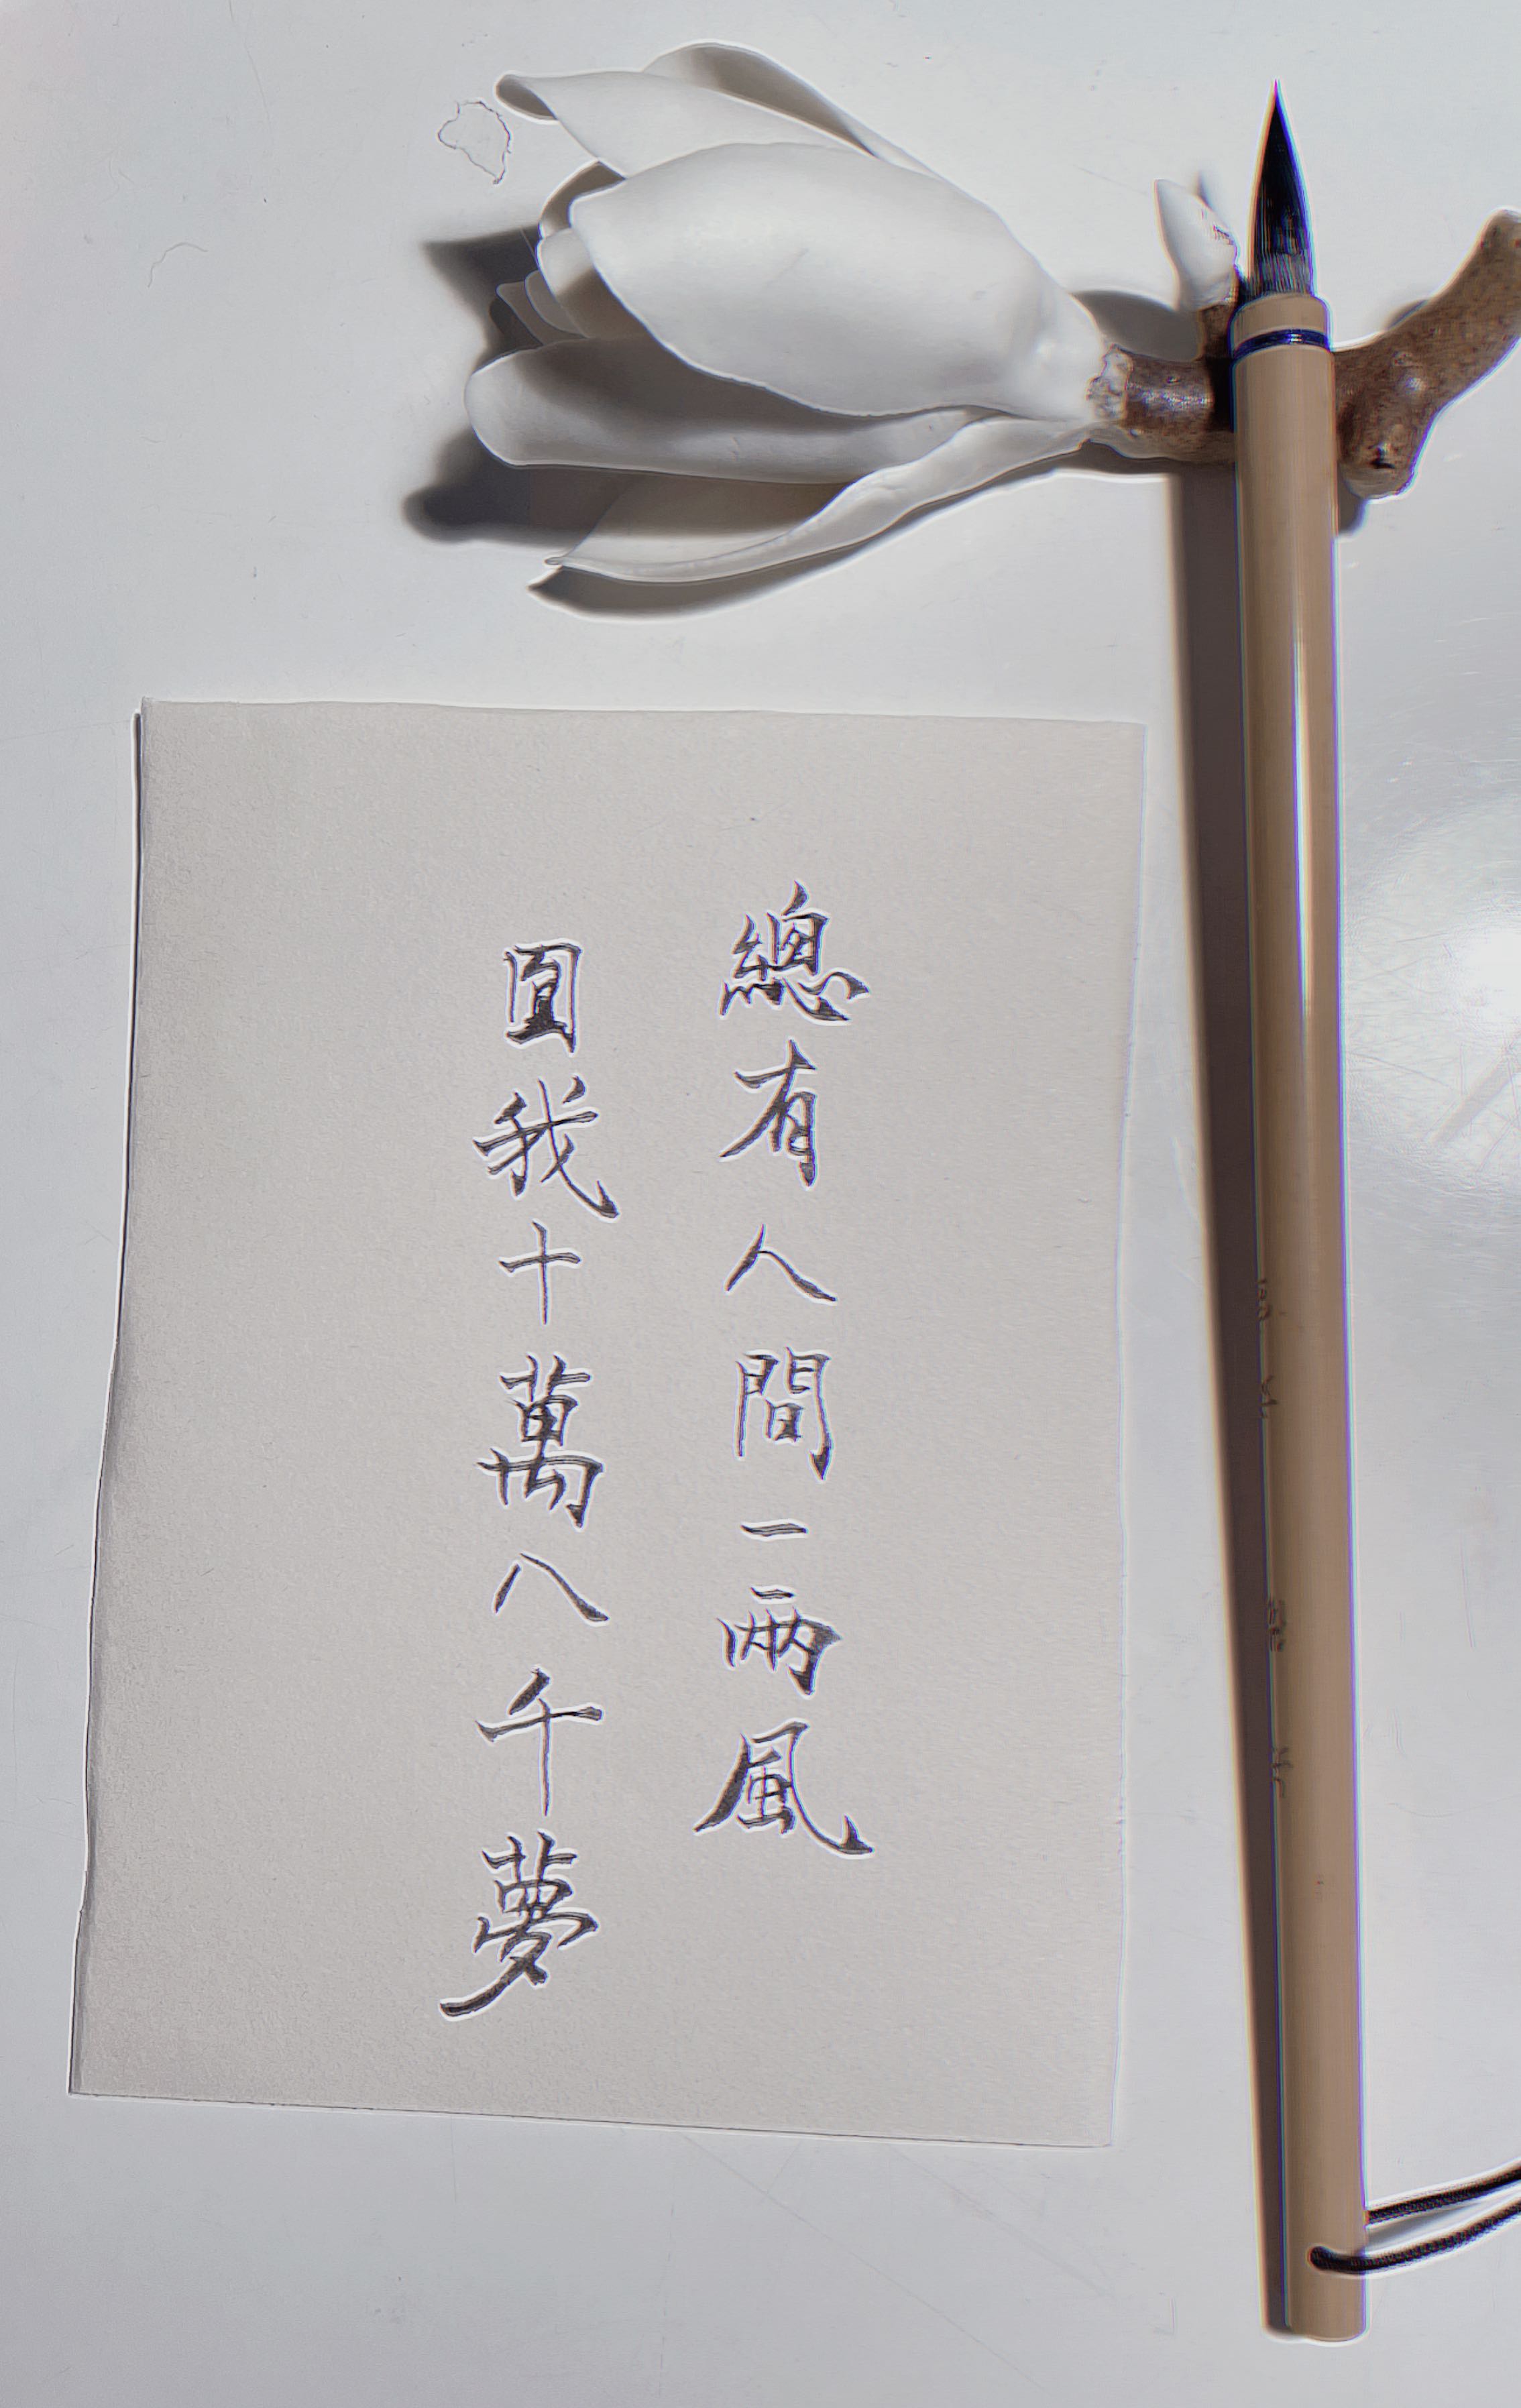 總有人間一兩風
圓我十萬八千夢